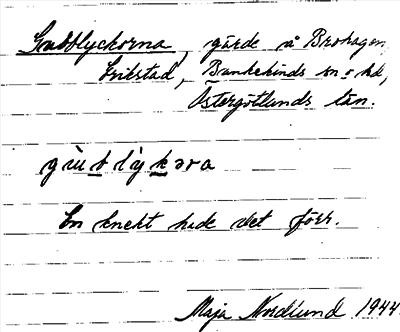 Gubblyckorna, gärde å Brohagen,
Erikstad, Bankekinds sn o hd,
Östergötlands län.
gùb lỳkəra
En knekt hade det förr.
Maja Nordlund 1944.